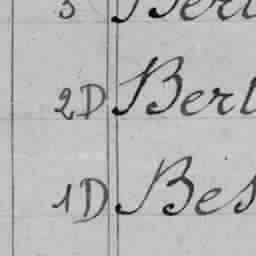 3 Berl
2D Berl
1D Bes